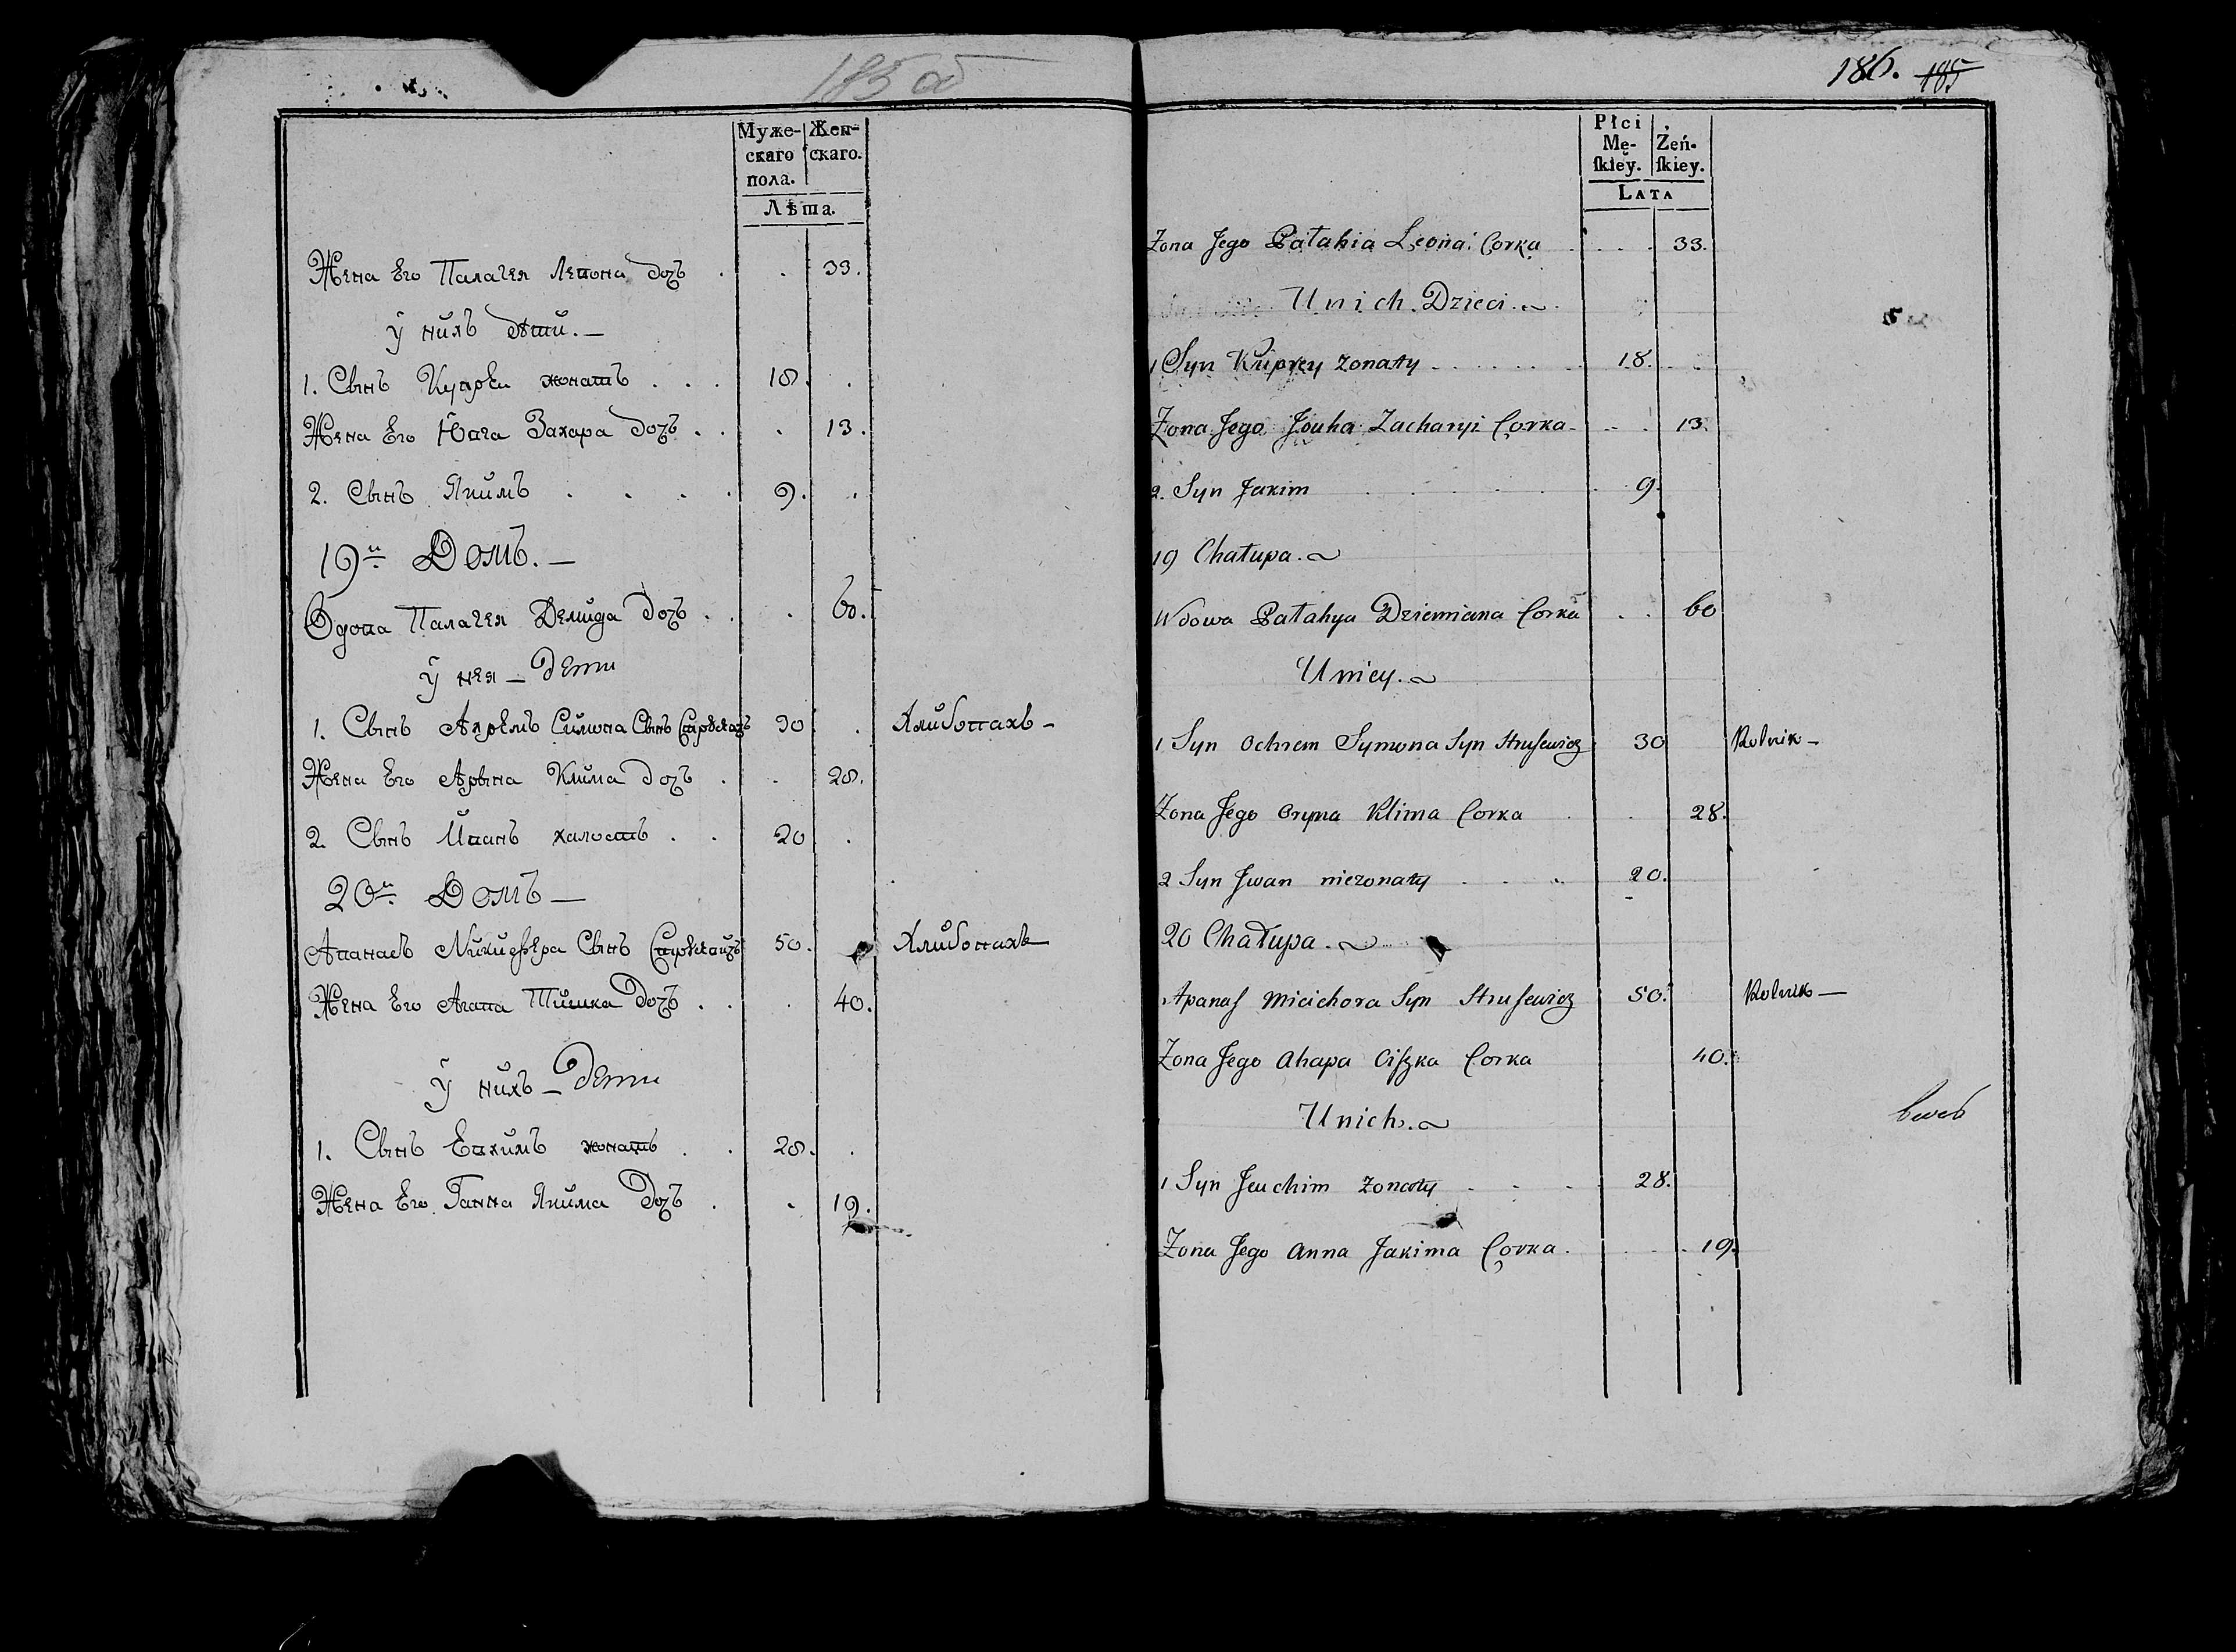 185 об
Муже- Жен-
скаго скаго.
пола.
Лѣта.
Жена Его Палагея Левона дочъ . . 33.
ў нихъ дѣти. —
1. Сынъ Купрей жонатъ . . . 18. .
Жена Его Югга Захара дочъ . . . 13.
2. Сынъ Якимъ . . . . 9. .
19й Домъ. —
Вдова Палагея Демида дочъ . . . 60.
ў нея — дети
1. Сынъ Ахремъ Симона Сынъ 30 . Хлибопахъ —
Жена Его Арына Клима дочъ . . 28.
2. Сынъ Иванъ халостъ . . 20 .
20й Домъ —
Апанасъ Микифера Сынъ 50. Хлибопахъ
Жена Его Агапа Тишка дочъ . . . 40.
ў нихъ — Дети
1. Сынъ Евхимъ жонатъ . . 28. .
Жена Его Ганна Якима дочъ . . 19.
186. 185
Płci
Mę- Żeń-
ſkiey. ſkiey.
LATA
Zona Jego Pałahia Leona Corka . . . . 33.
U nich Dzieci. ~
1 Syn Kuprey zonaty . . . . . . 18. . .
Zona Jego Jouha Zacharyi Corka . . . 13.
2. Syn Jakim . . . . . 9.
19 Chałupa. ~
Wdowa Pałahya Dziemiana Corka . . 60
U niey. ~
1 Syn Ochrem Symona Syn Struſewicz 30 Rolnik —
Zona Jego Oryna Klima Corka . . 28.
2 Syn Jwan niezonaty . . . 20.
20 Chałupa. ~
Apanaſ Micichora Syn Struſewicz 50. Rolnik —
Zona Jego Ahapa Ciſzka Corka 40.
U nich. ~
1 Syn Jeuchim zonaty . . . 28.
Zona Jego Anna Jakima Corka . . . . 19.